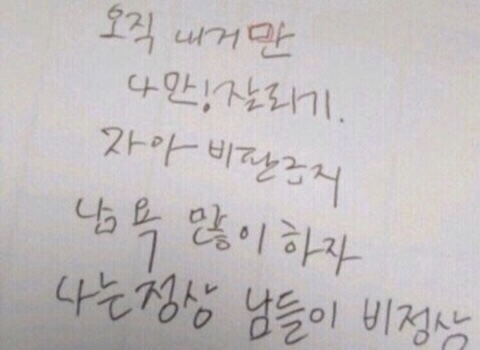 오직 내거만
나만! 잘라기.
자아비판금지
남욕 많이 하자
나는정상 남들이 비정상